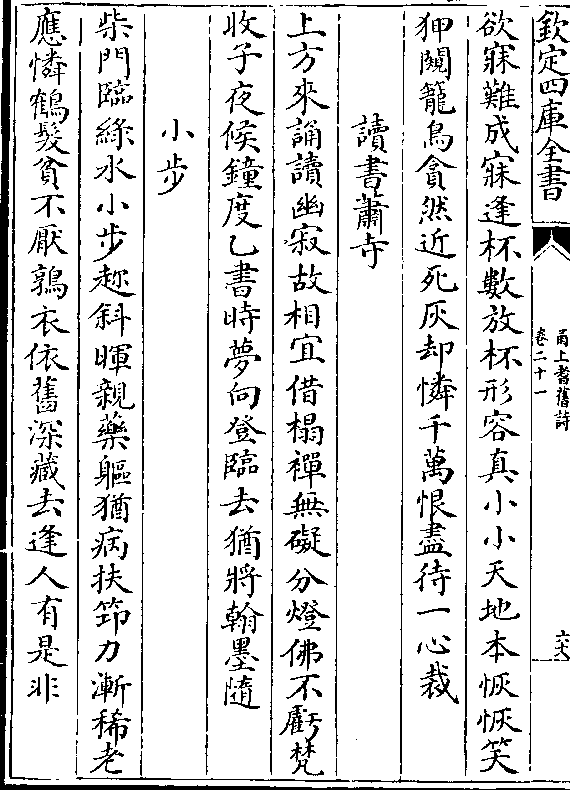 欽定四庫全書
甬上耆舊詩
卷二十一
六
欲寐難成寐逢杯數放杯形容真小小天地本恢恢笑
狎閱籠鳥貪然近死灰却憐千萬恨盡待一心裁
讀書蕭寺
上方來誦讀幽寂故相宜借榻禪無礙分燈佛不虧梵
收子夜候鐘度乙書時夢向登臨去猶將翰墨隨
小步
柴門臨綠水小步趂斜暉親藥軀猶病扶筇力漸稀老
應憐鶴髮貧不厭鶉衣依舊深藏去逢人有是非